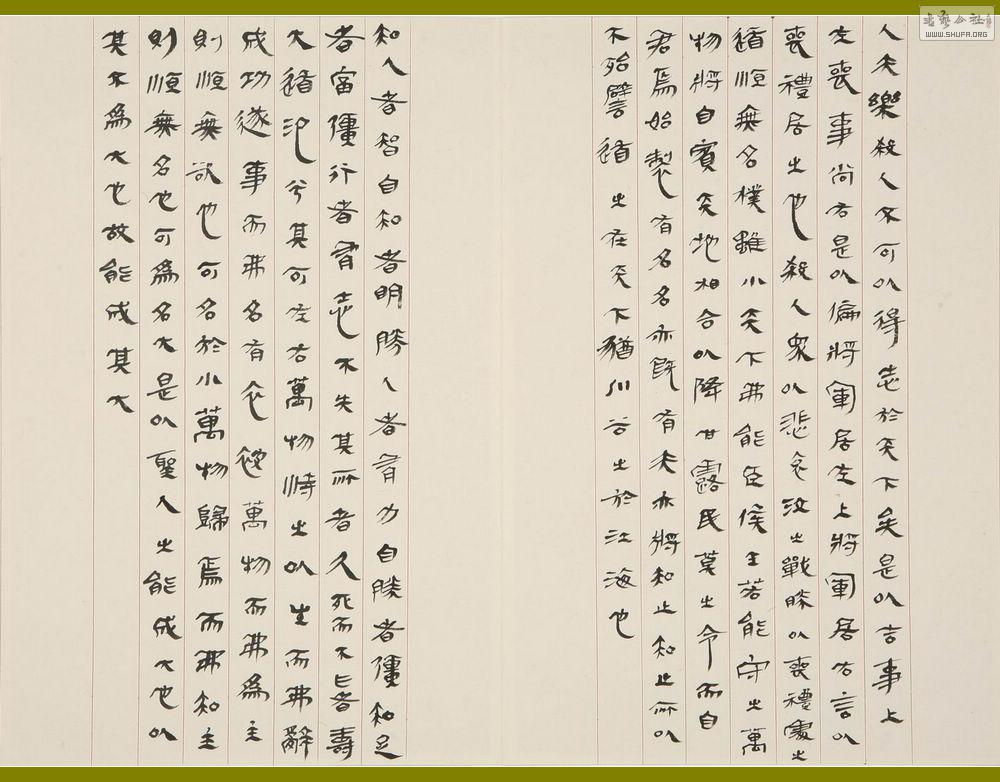 書藝公社
WWW.SHUFA.ORG
人夫樂殺人不可以得志於天下矣是以吉事上
左喪事尚右是以偏將軍居左上將軍居右言以
喪禮居之也殺人眾以悲哀立之戰勝以喪禮處之
道恆無名樸雖小天下弗能臣侯王若能守之萬
物將自賓天地相合以降甘露民莫之令而自
均焉始制有名名亦既有夫亦將知止知止所以
不殆譬道之在天下猶川谷之於江海也
知人者智自知者明勝人者有力自勝者彊知足
者富彊行者有志不失其所者久死而不亡者壽
大道氾兮其可左右萬物恃之以生而弗辭
成功遂事而弗名有衣被萬物而弗為主
則恆無欲也可名於小萬物歸焉而弗知主
則恆無名也可為名大是以聖人之能成大也以
其不為大也故能成其大